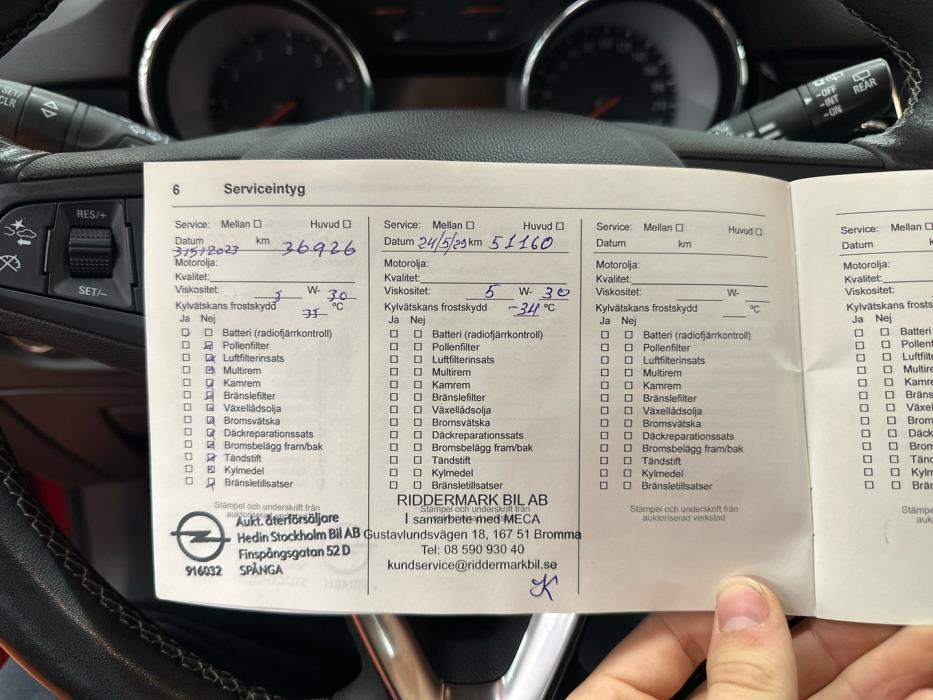 SET/
CLR
OFF
INT
ON
REAR
RES/+
SET/-
6 Serviceintyg
Service: Mellan ☐ Huvud ☐
Datum 31512023 km 36926
Motorolja:
Kvalitet:
Viskositet: 5 W- 30
Kylvätskans frostskydd 35 °C
Ja Nej
Batteri (radiofjärrkontroll)
Pollenfilter
Luftfilterinsats
Multirem
Kamrem
Bränslefilter
Växellådsolja
Bromsvätska
Däckreparationssats
Bromsbelägg fram/bak
Tändstift
Kylmedel
Bränsletillsatser
Stämpel och underskrift från
auktoriserad verkstad
Aukt. återförsäljare
Hedin Stockholm Bil AB
Finspångsgatan 52 D
916032 SPÅNGA
Service: Mellan ☐ Huvud ☐
Datum 24/5/23 km 51160
Motorolja:
Kvalitet:
Viskositet: 5 W- 30
Kylvätskans frostskydd -34 °C
Ja Nej
Batteri (radiofjärrkontroll)
Pollenfilter
Luftfilterinsats
Multirem
Kamrem
Bränslefilter
Växellådsolja
Bromsvätska
Däckreparationssats
Bromsbelägg fram/bak
Tändstift
Kylmedel
Bränsletillsatser
Stämpel och underskrift från
RIDDERMARK BIL AB
I samarbete med MECA
Gustavlundsvägen 18, 167 51 Bromma
Tel: 08 590 930 40
kundservice@riddermarkbil.se
Service: Mellan ☐ Huvud ☐
Datum km
Motorolja:
Kvalitet:
Viskositet: W-
Kylvätskans frostskydd °C
Ja Nej
Batteri (radiofjärrkontroll)
Pollenfilter
Luftfilterinsats
Multirem
Kamrem
Bränslefilter
Växellådsolja
Bromsvätska
Däckreparationssats
Bromsbelägg fram/bak
Tändstift
Kylmedel
Bränsletillsatser
Stämpel och underskrift från
auktoriserad verkstad
Service: Mellan ☐
Datum
Motorolja:
Kvalitet:
Viskositet:
Kylvätskans
Ja Nej
Batteri